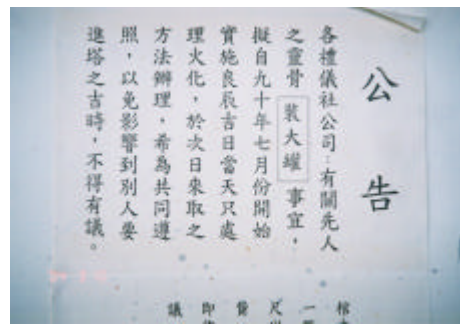 公告
各禮儀社公司：有關先人
之靈骨裝大罐事宜，
擬自九十年七月份開始
實施良辰吉日當天只處
理火化，於次日來取之
方法辦理，希為共同遵
照，以免影響到別人要
進塔之吉時，不得有議。